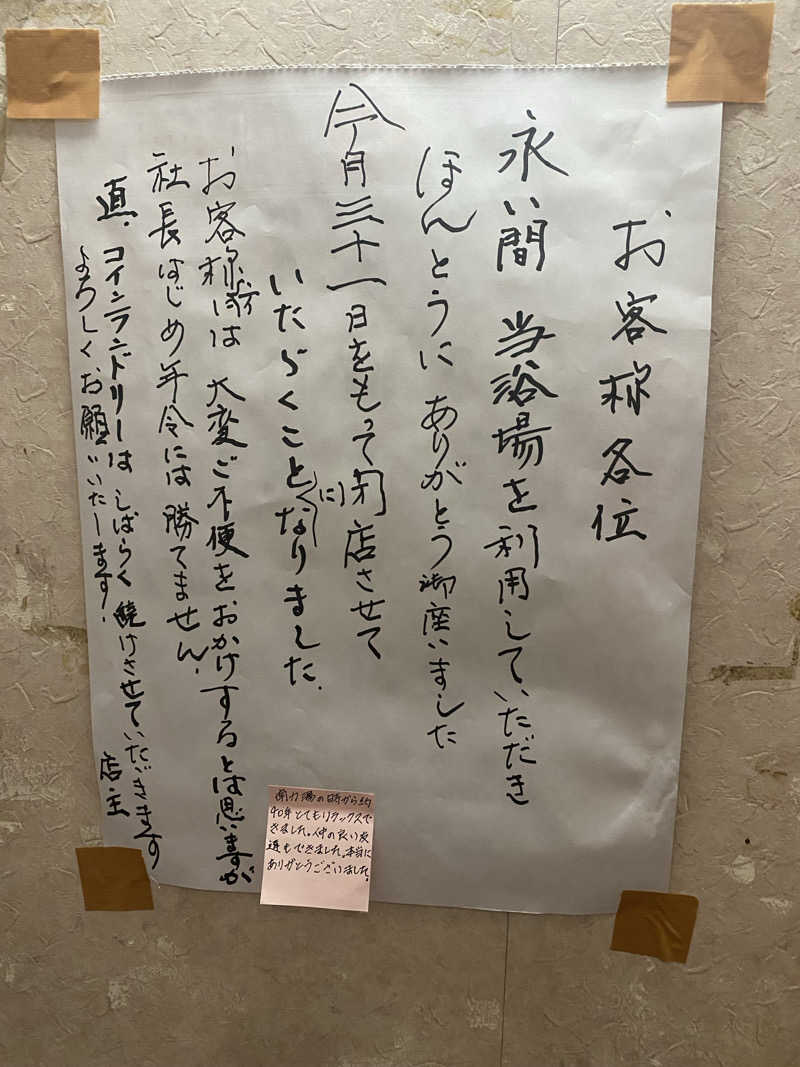 お客様各位
永い間 当浴場を利用していただき
ほんとうに ありがとう御座いました
今月三十一日をもって閉店させて
いただくことになりました.
お客様方には 大変ご不便をおかけするとは思いますが
社長はじめ年令には 勝てません.
直、コインランドリーは しばらく 続けさせていただきます
よろしくお願いいたします. 店主
湯の時から約
40年とてもリラックスで
きました。仲の良い友
達もできました。本当に
ありがとうございました。